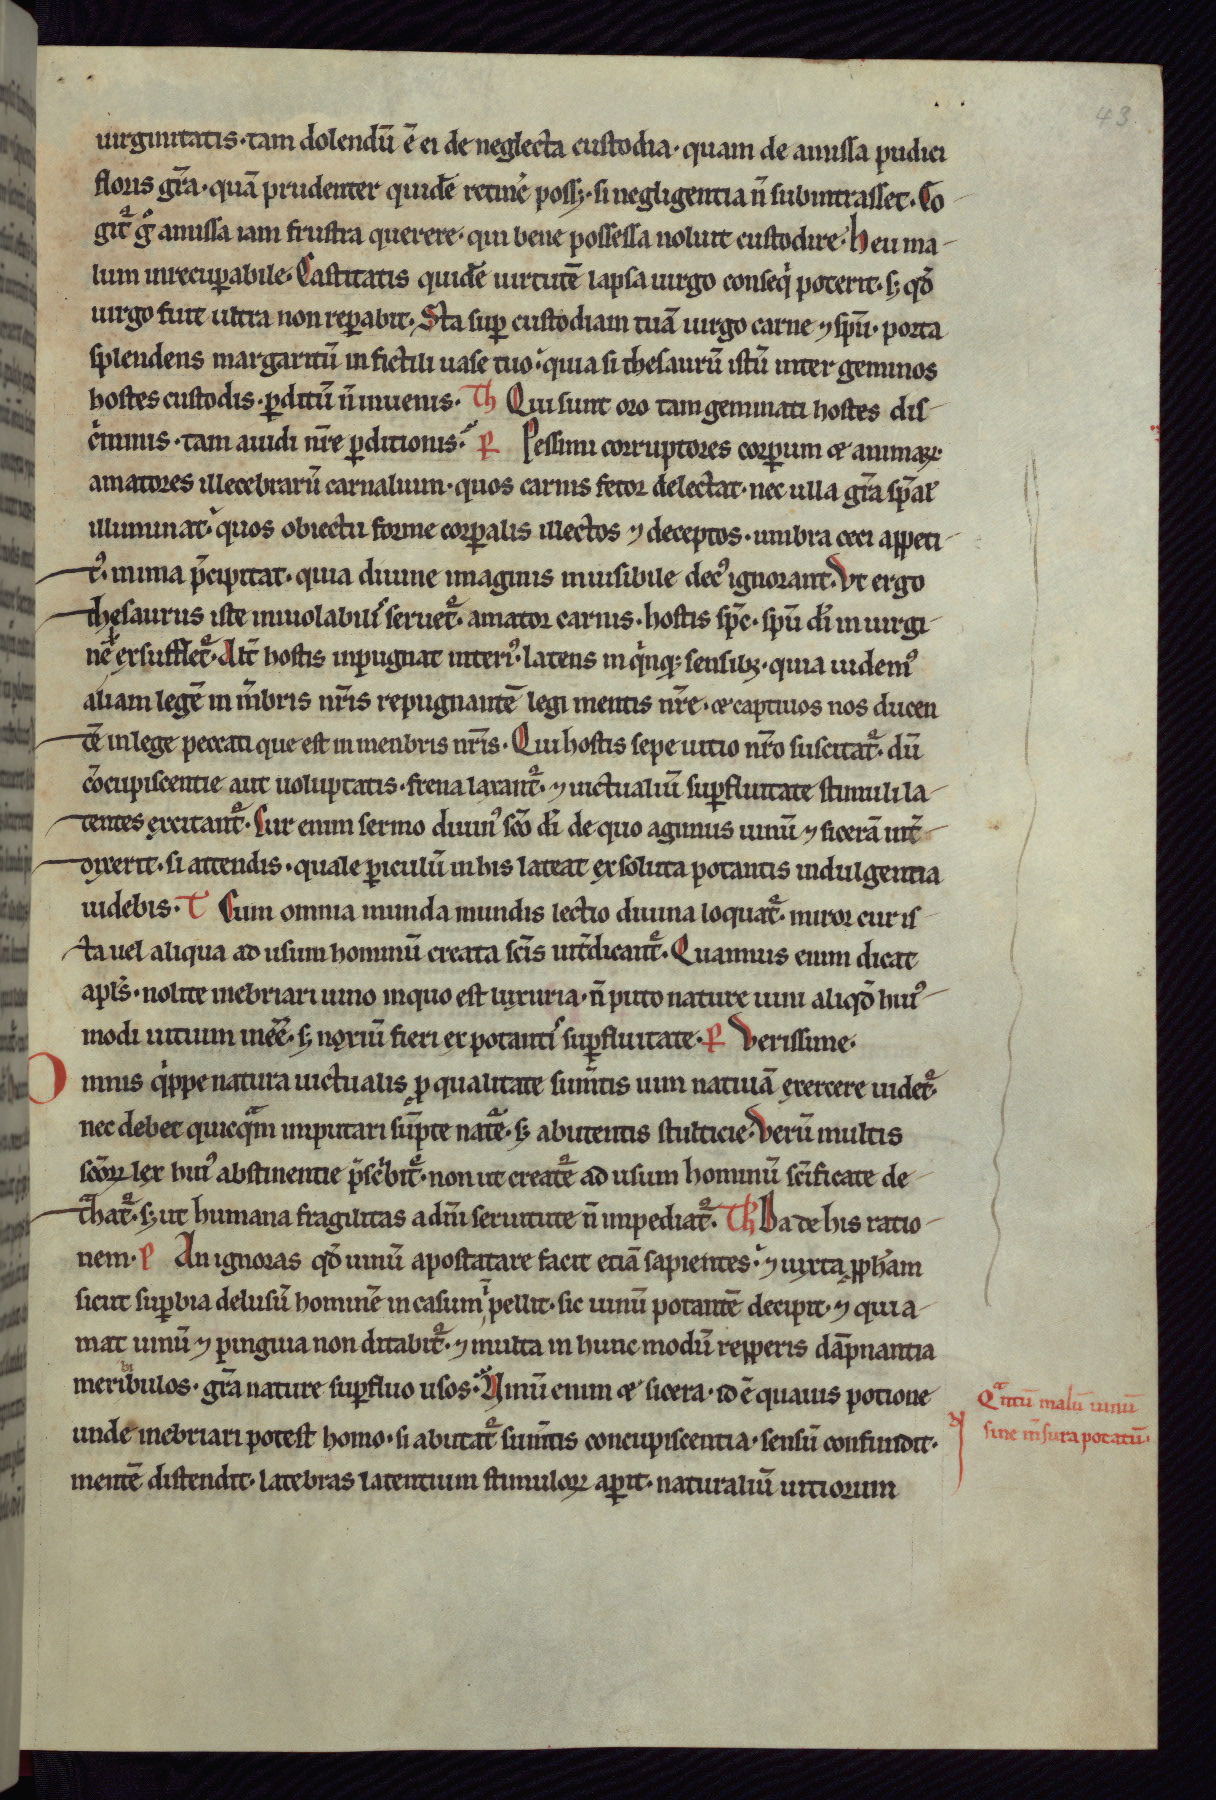 43
uirginitatis·tam dolendū ē ei de neglecta custodia·quam de amissa pudici
floris gr̄a·quā prudenter quidē retinē possꝫ·si negligentia n̄ subintrasset·Co
git᷑ gͦ amissa iam frustra querere·qui bene possessa noluit custodire·heu ma
lum inrecuꝑabile·Castitatis quidē uirtutē lapsa uirgo conseqͥ poterit·sꝫ qđ
uirgo fuit ultra non reꝑabit·Sta suꝑ custodiam tuā uirgo carne ⁊ sp̄u·porta
splendens margaritū in fictili uase tuo·quia si thesaurū istū inter geminos
hostes custodis·ꝑditū n̄ inuenis·Th Qui sunt oro tam geminati hostes dis
c̄minis·tam auidi nr̄e ꝑditionis· P Pessimi corruptores corꝑum & animaꝝ·
amatores illecebrarū carnalium·quos carnis fetor delectat·nec ulla gr̄a sp̄al᷑
illuminat·quos obiectu forme corꝑalis illectos ⁊ deceptos·umbra ceci appeti
tꝰ·in ima p̄cipitat·quia diuine imaginis inuisibile decꝰ ignorant·Vt ergo
thesaurus iste inuiolabilis seruet᷑·amator carnis·hostis sp̄c·sp̄u dī in uirgi
nē exsufflet᷑·Alt̄ hostis inpugnat interiꝰ·latens in qͥnqꝫ sensibꝫ·quia uidemꝰ
aliam legē in m̄bris nr̄is repugnantē legi mentis nr̄e·& captiuos nos ducen
tē in lege peccati que est in menbris nr̄is·Qui hostis sepe uitio nr̄o suscitat᷑·dū
c̄ocupiscentie aut uoluptatis·frena laxant᷑·⁊ uictualiū suꝑfluitate stimuli la
tentes excitant᷑·Cur enim sermo diuinꝰ sc̄o dī de quo agimus uinū ⁊ sicerā int̄
dixerit·si attendis·quale ꝑiculū in his lateat ex soluta potantis indulgentia
uidebis·T Cum omnia munda mundis lectio diuina loquat᷑·miror cur is
ta uel aliqua ad usum hominū creata sc̄is int̄dicant᷑·Quamuis enim dicat
apl̄s·nolite inebriari uino in quo est luxuria·n̄ puto nature uini aliqđ huiꝰ
modi uitium inēē·sꝫ noxiū fieri ex potantis suꝑfluitate·P Verissime·
Omnis qͥppe natura uictualis ꝓ qualitate sum̄tis uim natiuā exercere uidet᷑·
nec debet quicqͣm imputari sūpte nat᷑e·sꝫ abutentis stulticie·Verū multis
sc̄oꝝ lex huiꝰ abstinentie p̄sc̄bit᷑·non ut creat᷑e ad usum hominū sc̄ificate de
tͣhat᷑·sꝫ ut humana fragilitas a dn̄i seruitute n̄ impediat᷑·Th Da de his ratio
nem·P An ignoras qđ uinū apostatare facit etiā sapientes·⁊ iuxta ꝓph̄am
sicut suꝑbia delusū hominē in casum īpellit·sic uinū potantē decipit·⁊ qui a
mat uinū ⁊ pinguia non ditabit᷑·⁊ multa in hunc modū repperis dāpnantia
meribibulos·gr̄a nature suꝑfluo usos·Vinū enim & sicera·id ē quauis potione
unde inebriari potest homo·si abutat᷑ sum̄tis concupiscentia·sensū confundit·
mentē distendit·latebras latentium stimuloꝝ aꝑit·naturaliū uitiorum
Qͣntū malū uinū
sine m̄sura potatū·